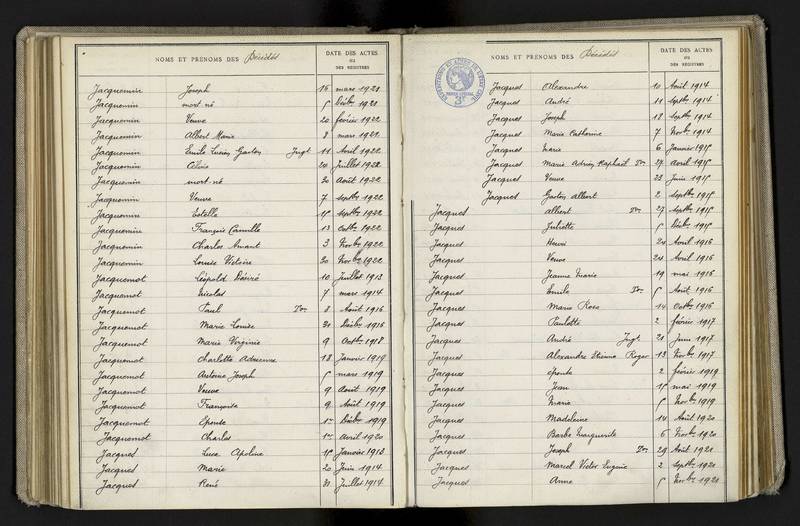 NOMS ET PRÉNOMS DES Décédés
DATE DES ACTES
OU
DES REGISTRES
Jacquemin Joseph 16 mars 1921
Jacquemin mort-né 5 Décbre 1921
Jacquemin Veuve 20 février 1922
Jacquemin Albert Marie 8 mars 1922
Jacquemin Emile Lucien Gaston Jugt 11 Avril 1922
Jacquemin 20 Juillet 1922
Jacquemin mort-né 30 Août 1922
Jacquemin Veuve 7 septbre 1922
Jacquemin Estelle 15 septbre 1922
Jacquemin François Camille 13 Octbre 1922
Jacquemin Charles Amant 3 Novbre 1922
Jacquemin Louise Victoire 30 Novbre 1922
Jacquemot Léopold Désiré 10 Juillet 1913
Jacquemot Nicolas 7 mars 1914
Jacquemot Paul Don 8 Août 1916
Jacquemot Marie Louise 30 Décbre 1916
Jacquemot Marie Virginie 9 Octbre 1918
Jacquemot Charlotte Adrienne 18 Janvier 1919
Jacquemot Antoine Joseph 5 mars 1919
Jacquemot Veuve 9 Août 1919
Jacquemot Françoise 9 Août 1919
Jacquemot Epouse 1er Décbre 1919
Jacquemot Charles 1er Avril 1920
Jacques Luce Apoline 15 Janvier 1913
Jacques Marie 20 Juin 1914
Jacques René 31 Juillet 1914
NOMS ET PRÉNOMS DES Décédés
DATE DES ACTES
OU
DES REGISTRES
Jacques Alexandre 10 Août 1914
Jacques André 11 septbre 1914
Jacques Joseph 18 septbre 1914
Jacques Marie Catherine 7 Novbre 1914
Jacques Marie 6 Janvier 1915
Jacques Marie Adrien Raphaël Don 29 Avril 1915
Jacques Veuve 22 Juin 1915
Jacques Gaston Albert 2 septbre 1915
Jacques Albert Don 27 septbre 1915
Jacques Juliette 5 Décbre 1915
Jacques Henri 20 Avril 1916
Jacques Veuve 24 Avril 1916
Jacques Jeanne Marie 19 mai 1916
Jacques Emile Don 5 Août 1916
Jacques Marie Rose 14 Octbre 1916
Jacques Paulette 2 février 1917
Jacques André Jugt 21 Juin 1917
Jacques Alexandre Etienne Roger 13 Novbre 1917
Jacques épouse 2 février 1919
Jacques Jean 15 mai 1919
Jacques Marie 5 Novbre 1919
Jacques Madeleine 14 Août 1920
Jacques Barbe Marguerite 6 Novbre 1920
Jacques Joseph Don 29 Août 1921
Jacques Marcel Victor Eugène 2 septbre 1921
Jacques Anne 5 Novbre 1921